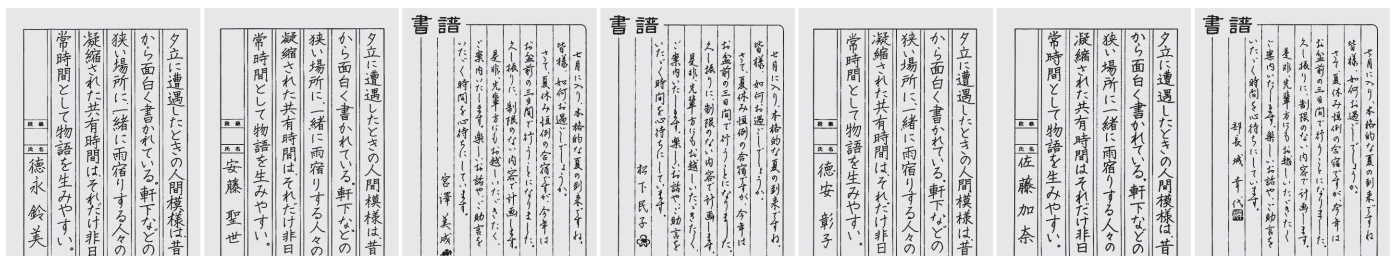 夕立に遭遇したときの人間模様は、昔
から面白く書かれている。軒下などの
狭い場所に、一緒に雨宿りする人々の
凝縮された共有時間は、それだけ非日
常時間として物語を生みやすい。
段級
氏名
徳永鈴美
夕立に遭遇したときの人間模様は、昔
から面白く書かれている。軒下などの
狭い場所に、一緒に雨宿りする人々の
凝縮された共有時間は、それだけ非日
常時間として物語を生みやすい。
段級
氏名
安藤聖世
書譜
七月に入り、本格的な夏の到来ですね。
皆様、如何お過ごしでしょうか。
さて、夏休み恒例の合宿ですが、今年は
お盆前の三日間で行うことになりました。
久し振りに、制限のない内容で計画します。
是非、先輩方にもお越しいただきたく、
ご案内いたします。楽しいお話や、ご助言を
いただく時間を心待ちにしています。
宮澤
書譜
七月に入り、本格的な夏の到来ですね。
皆様、如何お過ごしでしょうか。
さて、夏休み恒例の合宿ですが、今年は
お盆前の三日間で行うことになりました。
久し振りに、制限のない内容で計画します。
是非、先輩方にもお越しいただきたく、
ご案内いたします。楽しいお話や、ご助言を
いただく時間を心待ちにしています。
松下民子
夕立に遭遇したときの人間模様は、昔
から面白く書かれている。軒下などの
狭い場所に、一緒に雨宿りする人々の
凝縮された共有時間は、それだけ非日
常時間として物語を生みやすい。
段級
氏名
徳安彰子
夕立に遭遇したときの人間模様は、昔
から面白く書かれている。軒下などの
狭い場所に、一緒に雨宿りする人々の
凝縮された共有時間は、それだけ非日
常時間として物語を生みやすい。
段級
氏名
佐藤加奈
書譜
七月に入り、本格的な夏の到来ですね。
皆様、如何お過ごしでしょうか。
さて、夏休み恒例の合宿ですが、今年は
お盆前の三日間で行うことになりました。
久し振りに、制限のない内容で計画します。
是非、先輩方にもお越しいただきたく
ご案内いたします。楽しいお話や、ご助言を
いただく時間を心待ちにしています。
部長 城 幸代